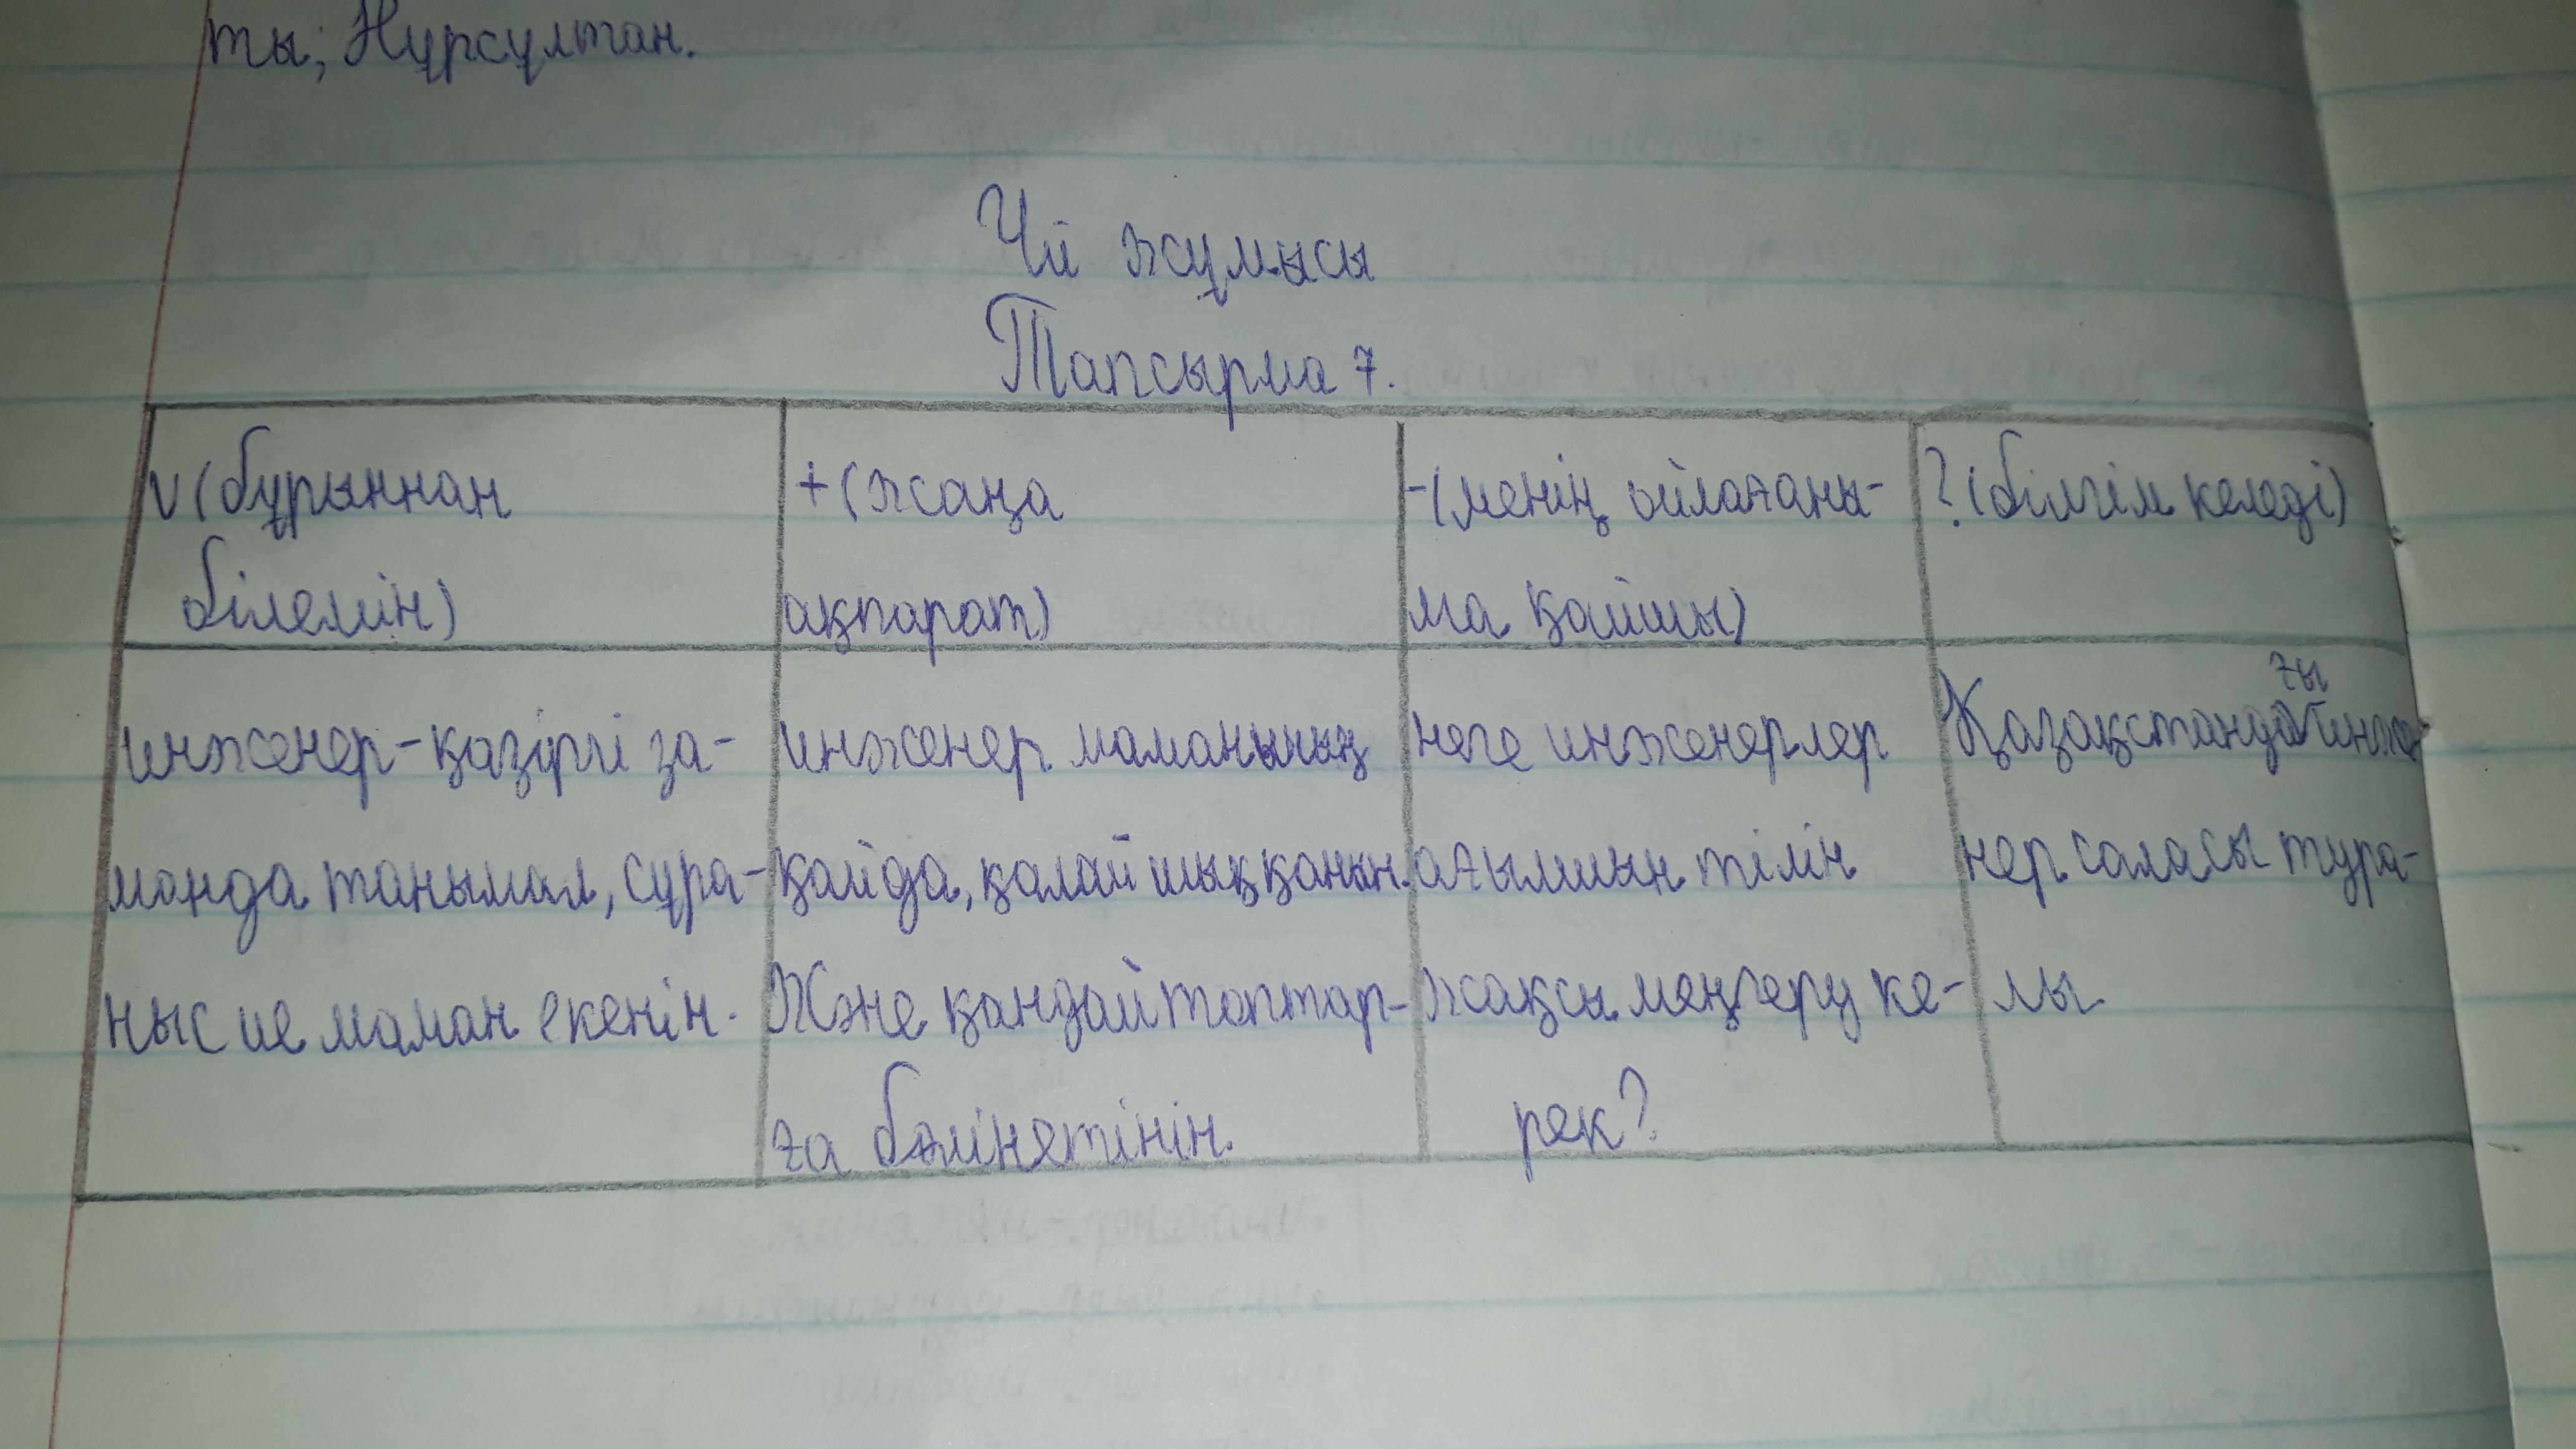 ты; Нұрсұлтан.
Үй жұмысы
Тапсырма 7.
v (бұрыннан
білемін)
+ (жаңа
ақпарат)
- (менің ойлағаны-
ма қайшы)
? (білгім келеді)
инженер-қазіргі за-
манда танымал, сұра-
ныс ие маман екенін.
инженер маманының
қайда, қалай шыққанын.
Және қандай топтар-
ға бөлінетінін.
неге инженерлер
ағылшын тілін
жақсы меңгеру ке-
рек?
Қазақстандағы инже-
нер саласы тура-
лы